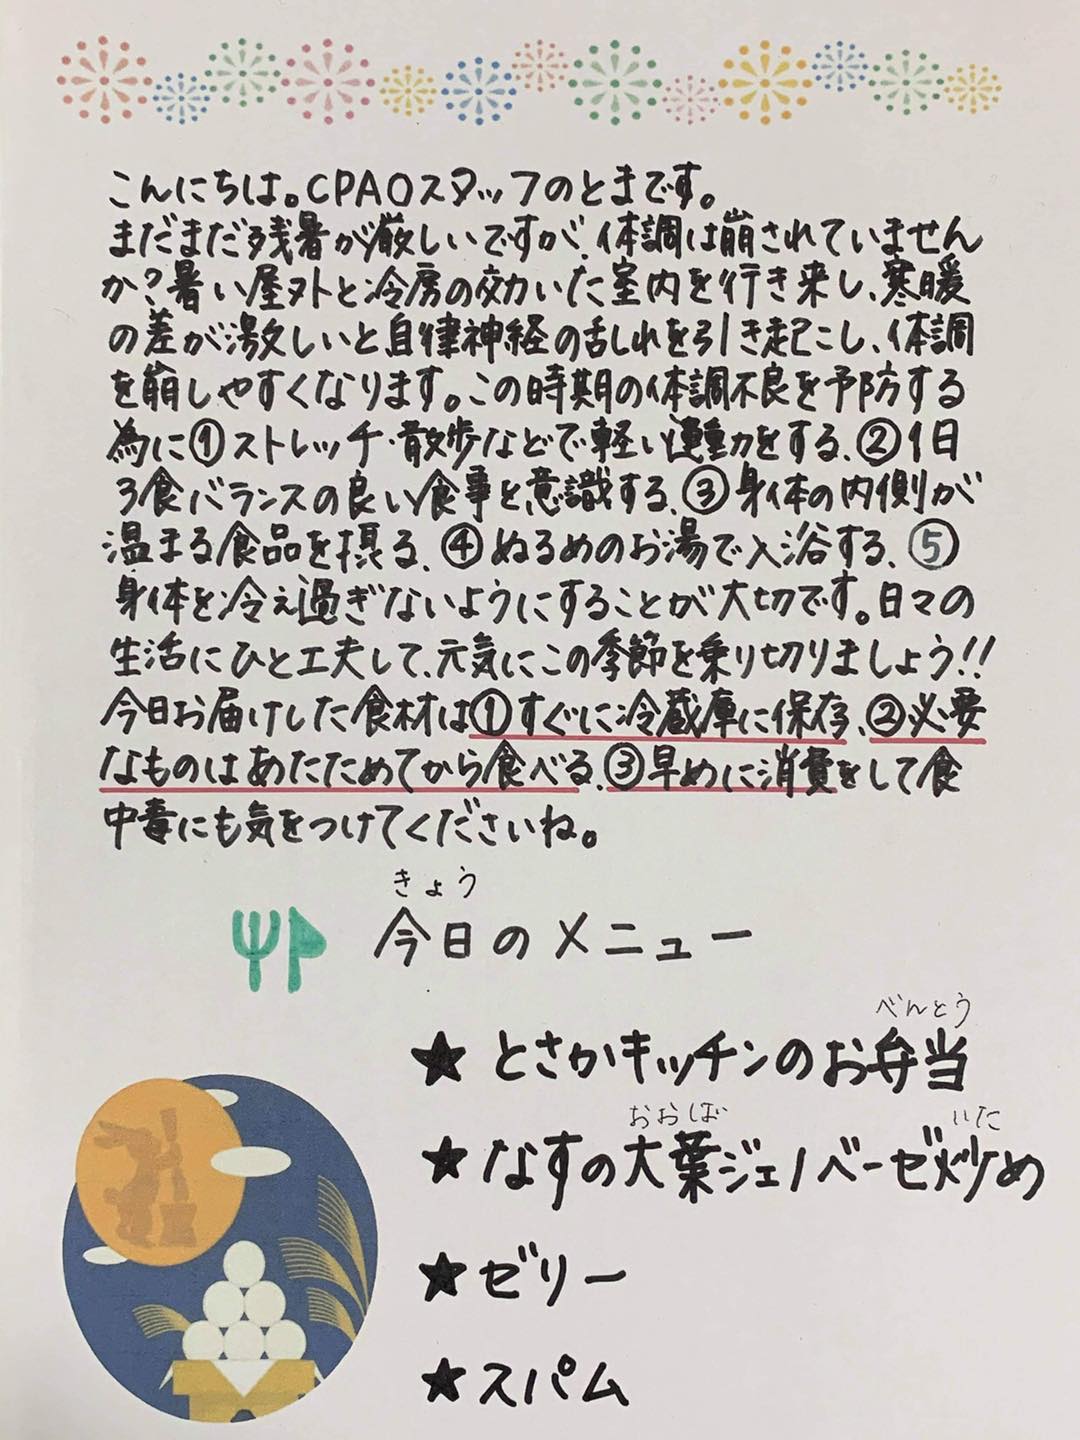 こんにちは。CPAOスタッフのとまです。
まだまだ残暑が厳しいですが、体調は崩されていません
か?暑い屋外と冷房の効いた室内を行き来し、寒暖
の差が激しいと自律神経の乱れを引き起こし、体調
を崩しやすくなります。この時期の体調不良を予防する
為に①ストレッチ・散歩などで軽い運動をする、②1日
3食バランスの良い食事を意識する、③身体の内側が
温まる食品を摂る、④ぬるめのお湯で入浴する、⑤
身体を冷え過ぎないようにすることが大切です。日々の
生活にひと工夫して、元気にこの季節を乗り切りましょう!!
今日お届けした食材は①すぐに冷蔵庫に保存、②必要
なものはあたためてから食べる、③早めに消費をして食
中毒にも気をつけてくださいね。
きょう
今日のメニュー
べんとう
★とさかキッチンのお弁当
おおば いた
★なすの大葉ジェノベーゼ炒め
★ゼリー
★スパム